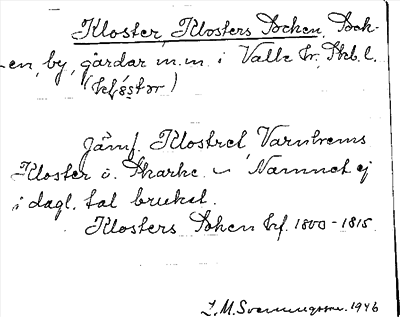 Kloster, Klosters Socken, Sock-
en, by, gårdar m.m. i Valle hr, Skb. l.
Jämf. Klostret Varnhems
Kloster o. Skarke. – Namnet ej
i dagl. tal brukat.
Klosters Soken Krf. 1800-1815.
L. M. Svenungsson. 1946